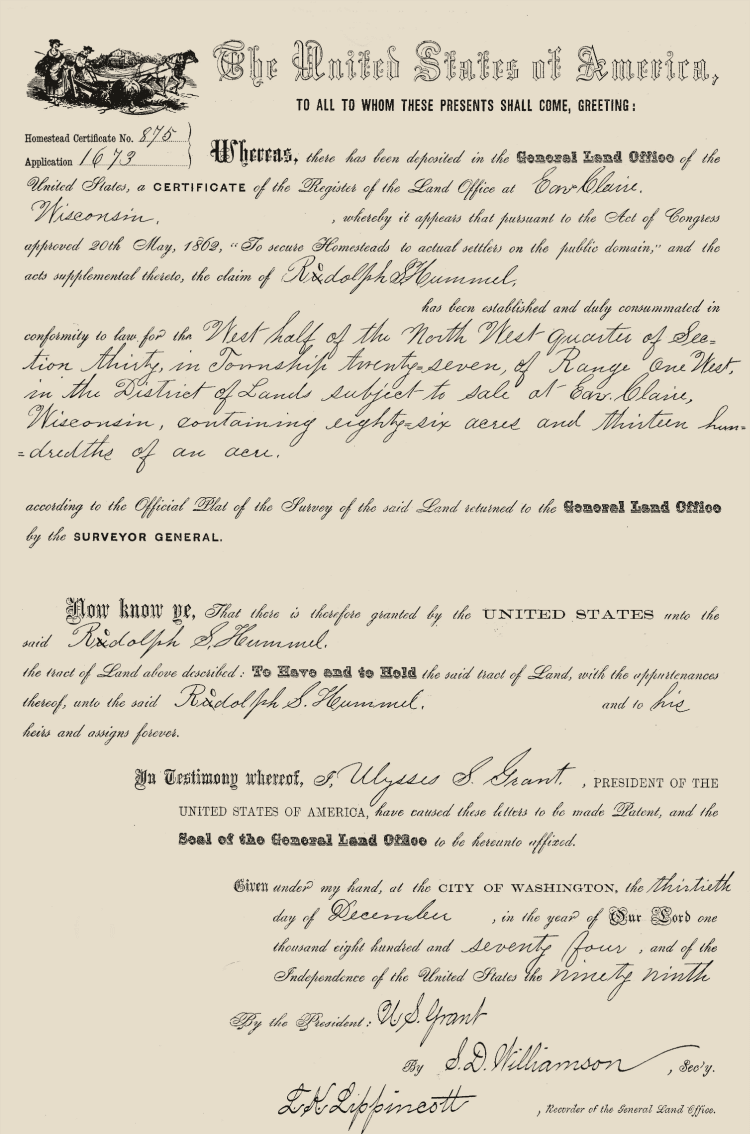 The United States of America,
TO ALL TO WHOM THESE PRESENTS SHALL COME, GREETING:
Homestead Certificate No. 875
Application 1673
Whereas, there has been deposited in the General Land Office of the
United States, a CERTIFICATE of the Register of the Land Office at Eau Claire,
Wisconsin, , whereby it appears that pursuant to the Act of Congress
approved 20th May, 1862, “To secure Homesteads to actual settlers on the public domain,” and the
acts supplemental thereto, the claim of Rudolph S. Hummel,
has been established and duly consummated in
conformity to law, for the West half of the North West quarter of Sec=
tion thirty, in Township twenty=seven, of Range One West,
in the District of Lands subject to sale at Eau Claire,
Wisconsin, containing eighty=six acres and thirteen hun=
=dredths of an acre.
according to the Official Plat of the Survey of the said Land returned to the General Land Office
by the SURVEYOR GENERAL.
Now know ye, That there is therefore granted by the UNITED STATES unto the
said Rudolph S. Hummel.
the tract of Land above described: To Have and to Hold the said tract of Land, with the appurtenances
thereof, unto the said Rudolph S. Hummel. and to his
heirs and assigns forever.
In Testimony whereof, I, Ulysses S. Grant. , PRESIDENT OF THE
UNITED STATES OF AMERICA, have caused these letters to be made Patent, and the
Seal of the General Land Office to be hereunto affixed.
Given under my hand, at the CITY OF WASHINGTON, the thirtieth
day of December , in the year of Our Lord one
thousand eight hundred and seventy four , and of the
Independence of the United States the ninety ninth
By the President: U. S. Grant
By S. D. Williamson , Sec'y.
L K Lippincott , Recorder of the General Land Office.